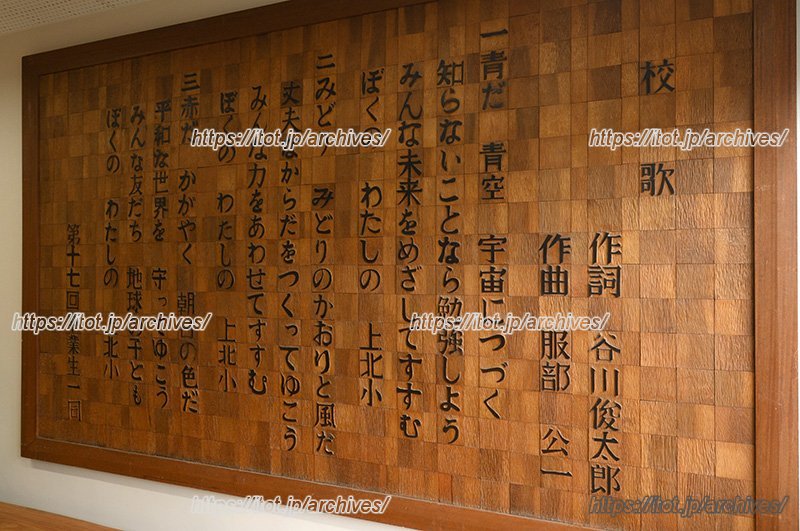 校歌
作詞 谷川俊太郎
作曲 服部 公一
一青だ 青空 宇宙につづく
知らないことなら勉強しよう
みんな未来をめざしてすすむ
ぼくの わたしの 上北小
二みどり みどりのかおりと風だ
丈夫なからだをつくってゆこう
みんな力をあわせてすすむ
ぼくの わたしの 上北小
三赤だ かがやく 朝日の色だ
平和な世界を 守ってゆこう
みんな友だち 地球の子ども
ぼくの わたしの 上北小
第十七回卒業生一同
https://itot.jp/archives/
https://itot.jp/archives/
https://itot.jp/archives/
https://itot.jp/archives/
https://itot.jp/archives/
https://itot.jp/archives/